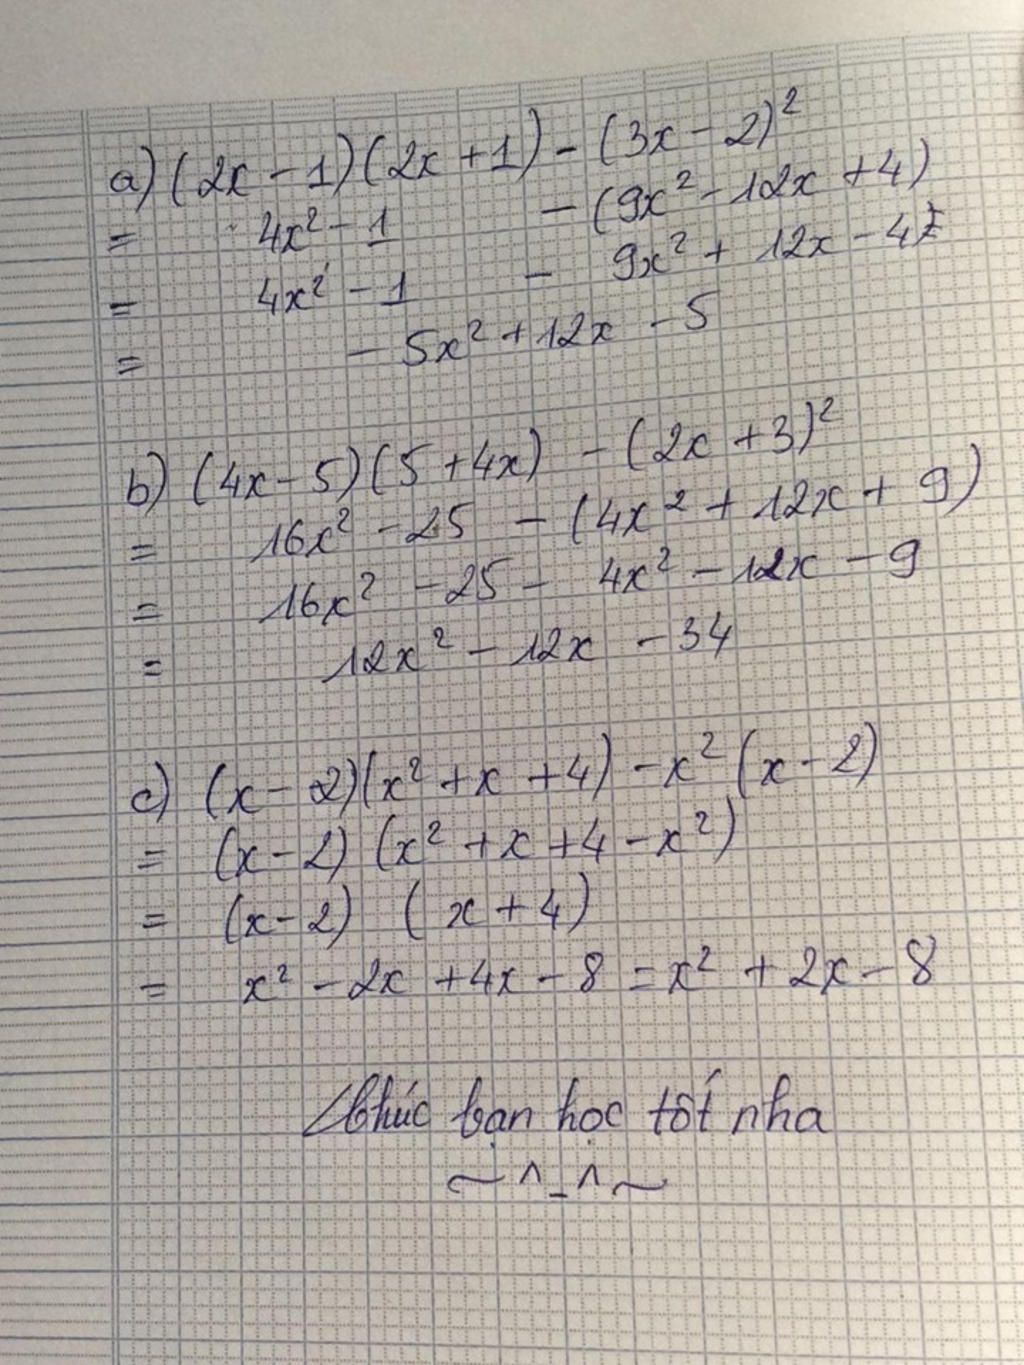 a) (2x - 1)(2x + 1) - (3x - 2)²
= 4x² - 1 - (9x² - 12x + 4)
= 4x² - 1 - 9x² + 12x - 4
= - 5x² + 12x - 5
b) (4x - 5)(5 + 4x) - (2x + 3)²
= 16x² - 25 - (4x² + 12x + 9)
= 16x² - 25 - 4x² - 12x - 9
= 12x² - 12x - 34
c) (x - 2)(x² + x + 4) - x² (x - 2)
= (x - 2) (x² + x + 4 - x²)
= (x - 2) (x + 4)
= x² - 2x + 4x - 8 = x² + 2x - 8
Chúc bạn học tốt nha
~ ^_^ ~